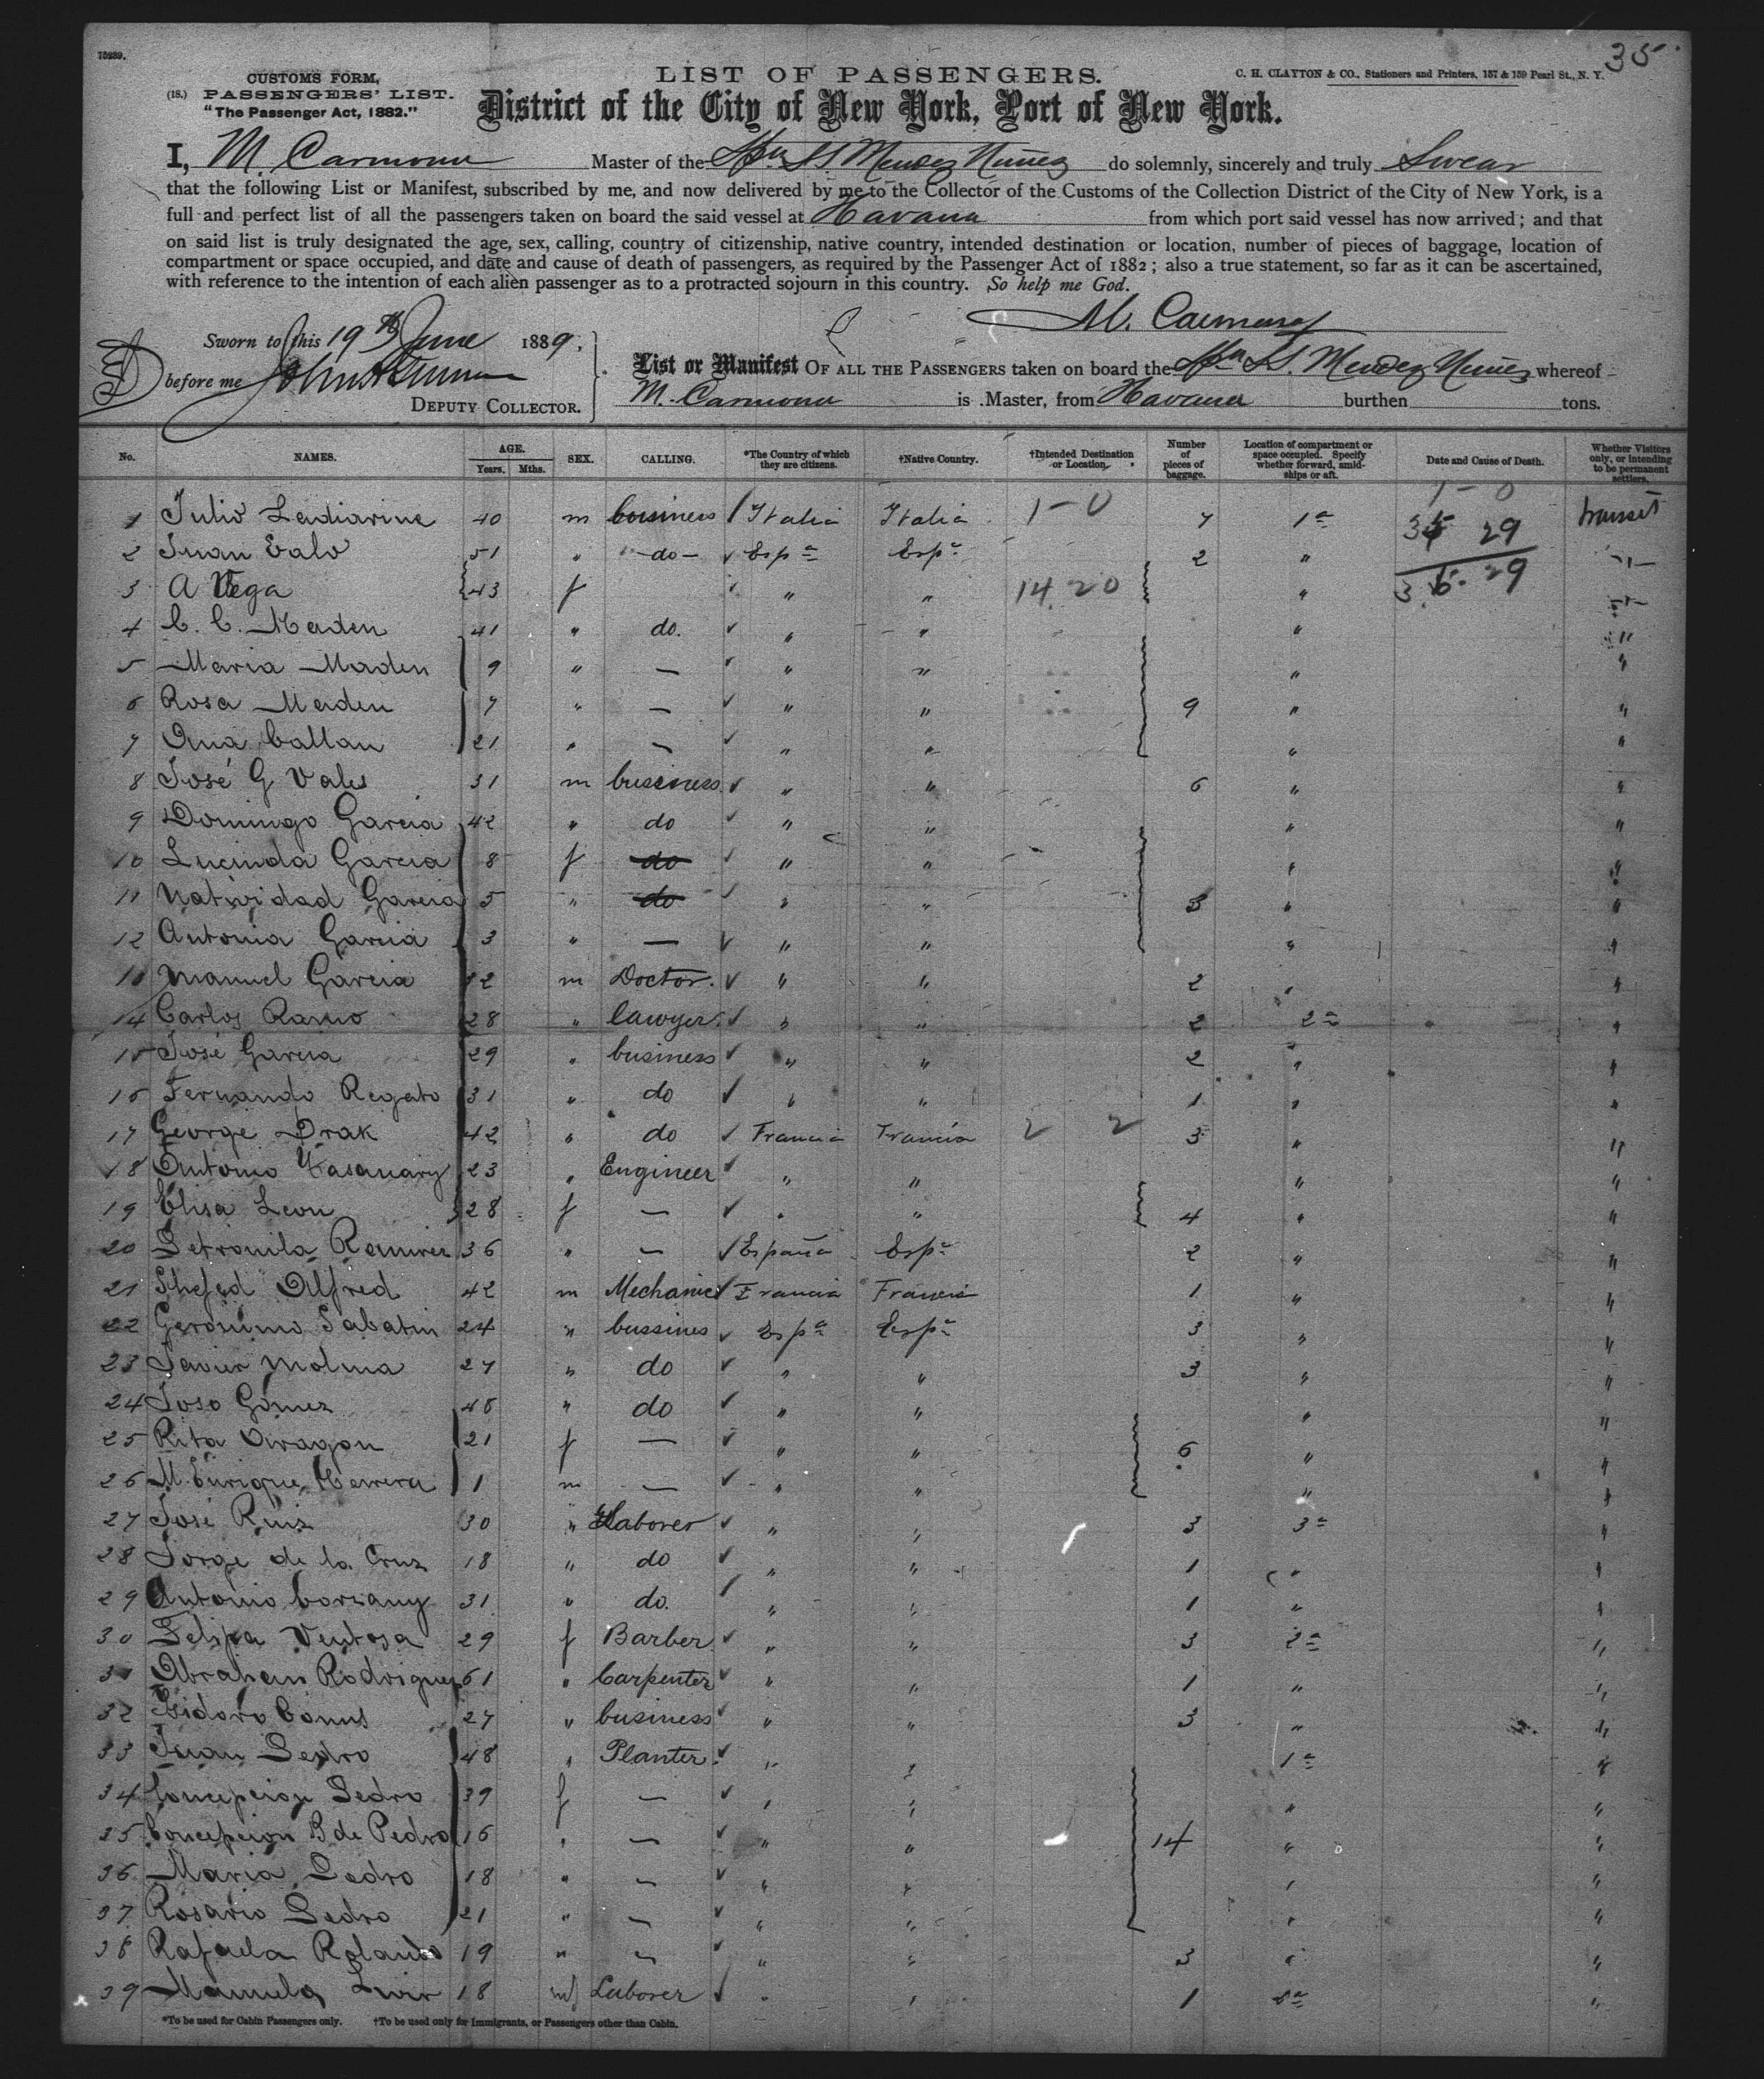 75239.
35
CUSTOMS FORM,
(18.) PASSENGERS' LIST.
"The Passenger Act, 1882."
LIST OF PASSENGERS.
C. H. CLAYTON & CO., Stationers and Printers, 157 & 159 Pearl St., N. Y.
District of the City of New York, Port of New York.
I, M. Carmona Master of the Spn SS Mendez Nuñez do solemnly, sincerely and truly Swear
that the following List or Manifest, subscribed by me, and now delivered by me to the Collector of the Customs of the Collection District of the City of New York, is a
full and perfect list of all the passengers taken on board the said vessel at Havana from which port said vessel has now arrived; and that
on said list is truly designated the age, sex, calling, country of citizenship, native country, intended destination or location, number of pieces of baggage, location of
compartment or space occupied, and date and cause of death of passengers, as required by the Passenger Act of 1882; also a true statement, so far as it can be ascertained,
with reference to the intention of each alien passenger as to a protracted sojourn in this country. So help me God.
M. Carmona
Sworn to this 19th June 1889,
before me
DEPUTY COLLECTOR.
List or Manifest OF ALL THE PASSENGERS taken on board the Spn SS. Mendez Nuñez whereof
M. Carmona is Master, from Havana burthen tons.
No. NAMES. AGE. Years. Mths. SEX. CALLING. *The Country of which they are citizens. †Native Country. †Intended Destination or Location. Number of pieces of baggage. Location of compartment or space occupied. Specify whether forward, amidships or aft. Date and Cause of Death. Whether Visitors only, or intending to be permanent settlers.
1 - 0
1 Julio 40 m business Italia Italia 1-0 7 1a 35 29 transet
2 Juan Calv 51 " do Espa Espa 2 "
3 A Vega 43 f " " 14 20 " 36. 29
4 C. C. Maden 41 " do. " " " "
5 Maria Maden 9 " — " " " "
6 Rosa Maden 7 " — " " 9 " "
7 Ana Callan 21 " — " " " "
8 José G Vales 31 m bussiness " " 6 " "
9 Domingo Garcia 42 " do " " " "
10 Lucinda Garcia 8 f do " " " "
11 Natividad Garcia 5 " do " " 3 " "
12 Antonia Garcia 3 " — " " " "
13 Manuel Garcia 32 m Doctor. " " 2 " "
14 Carlos Ramo 28 " lawyer " " 2 2a "
15 José Garcia 29 " business " " 2 " "
16 Fernando Regato 31 " do " " 1 " "
17 George Drak 42 " do Francia Francia 2 2 3 " "
18 Antonio 23 " Engineer " " " "
19 Elisa Leon 28 f — " " 4 " "
20 Petronila Ramirez 36 " — España Espa 2 " "
21 Alfred 42 m Mechanic Francia Francia 1 " "
22 Geronimo Sabatin 24 " bussines Espa Espa 3 " "
23 Javier Molina 27 " do " " 3 " "
24 Joso Gomez 48 " do " " " "
25 Rita Aragon 21 f — " " 6 " "
26 M. Enrique Herrera 1 m — " " " "
27 José Ruiz 30 " Laborer " " 3 3a "
28 Jorge de la Cruz 18 " do " " 1 " "
29 Antonio 31 " do. " " 1 " "
30 Felipa Ventosa 29 f Barber " " 3 2a "
31 Abraham Rodriguez 61 " Carpenter " " 1 " "
32 Isidoro 27 " business " " 3 " "
33 Juan Pedro 48 " Planter. " " 1a "
34 Concepcion Pedro 39 f — " " " "
35 Concepcion B de Pedro 16 " — " " 14 " "
36 Maria Pedro 18 " — " " " "
37 Rosario Pedro 21 " — " " " "
38 Rafaela Rolando 19 " — " " 3 " "
39 Manuela 18 Laborer " " 1 "
*To be used for Cabin Passengers only. †To be used only for Immigrants, or Passengers other than Cabin.